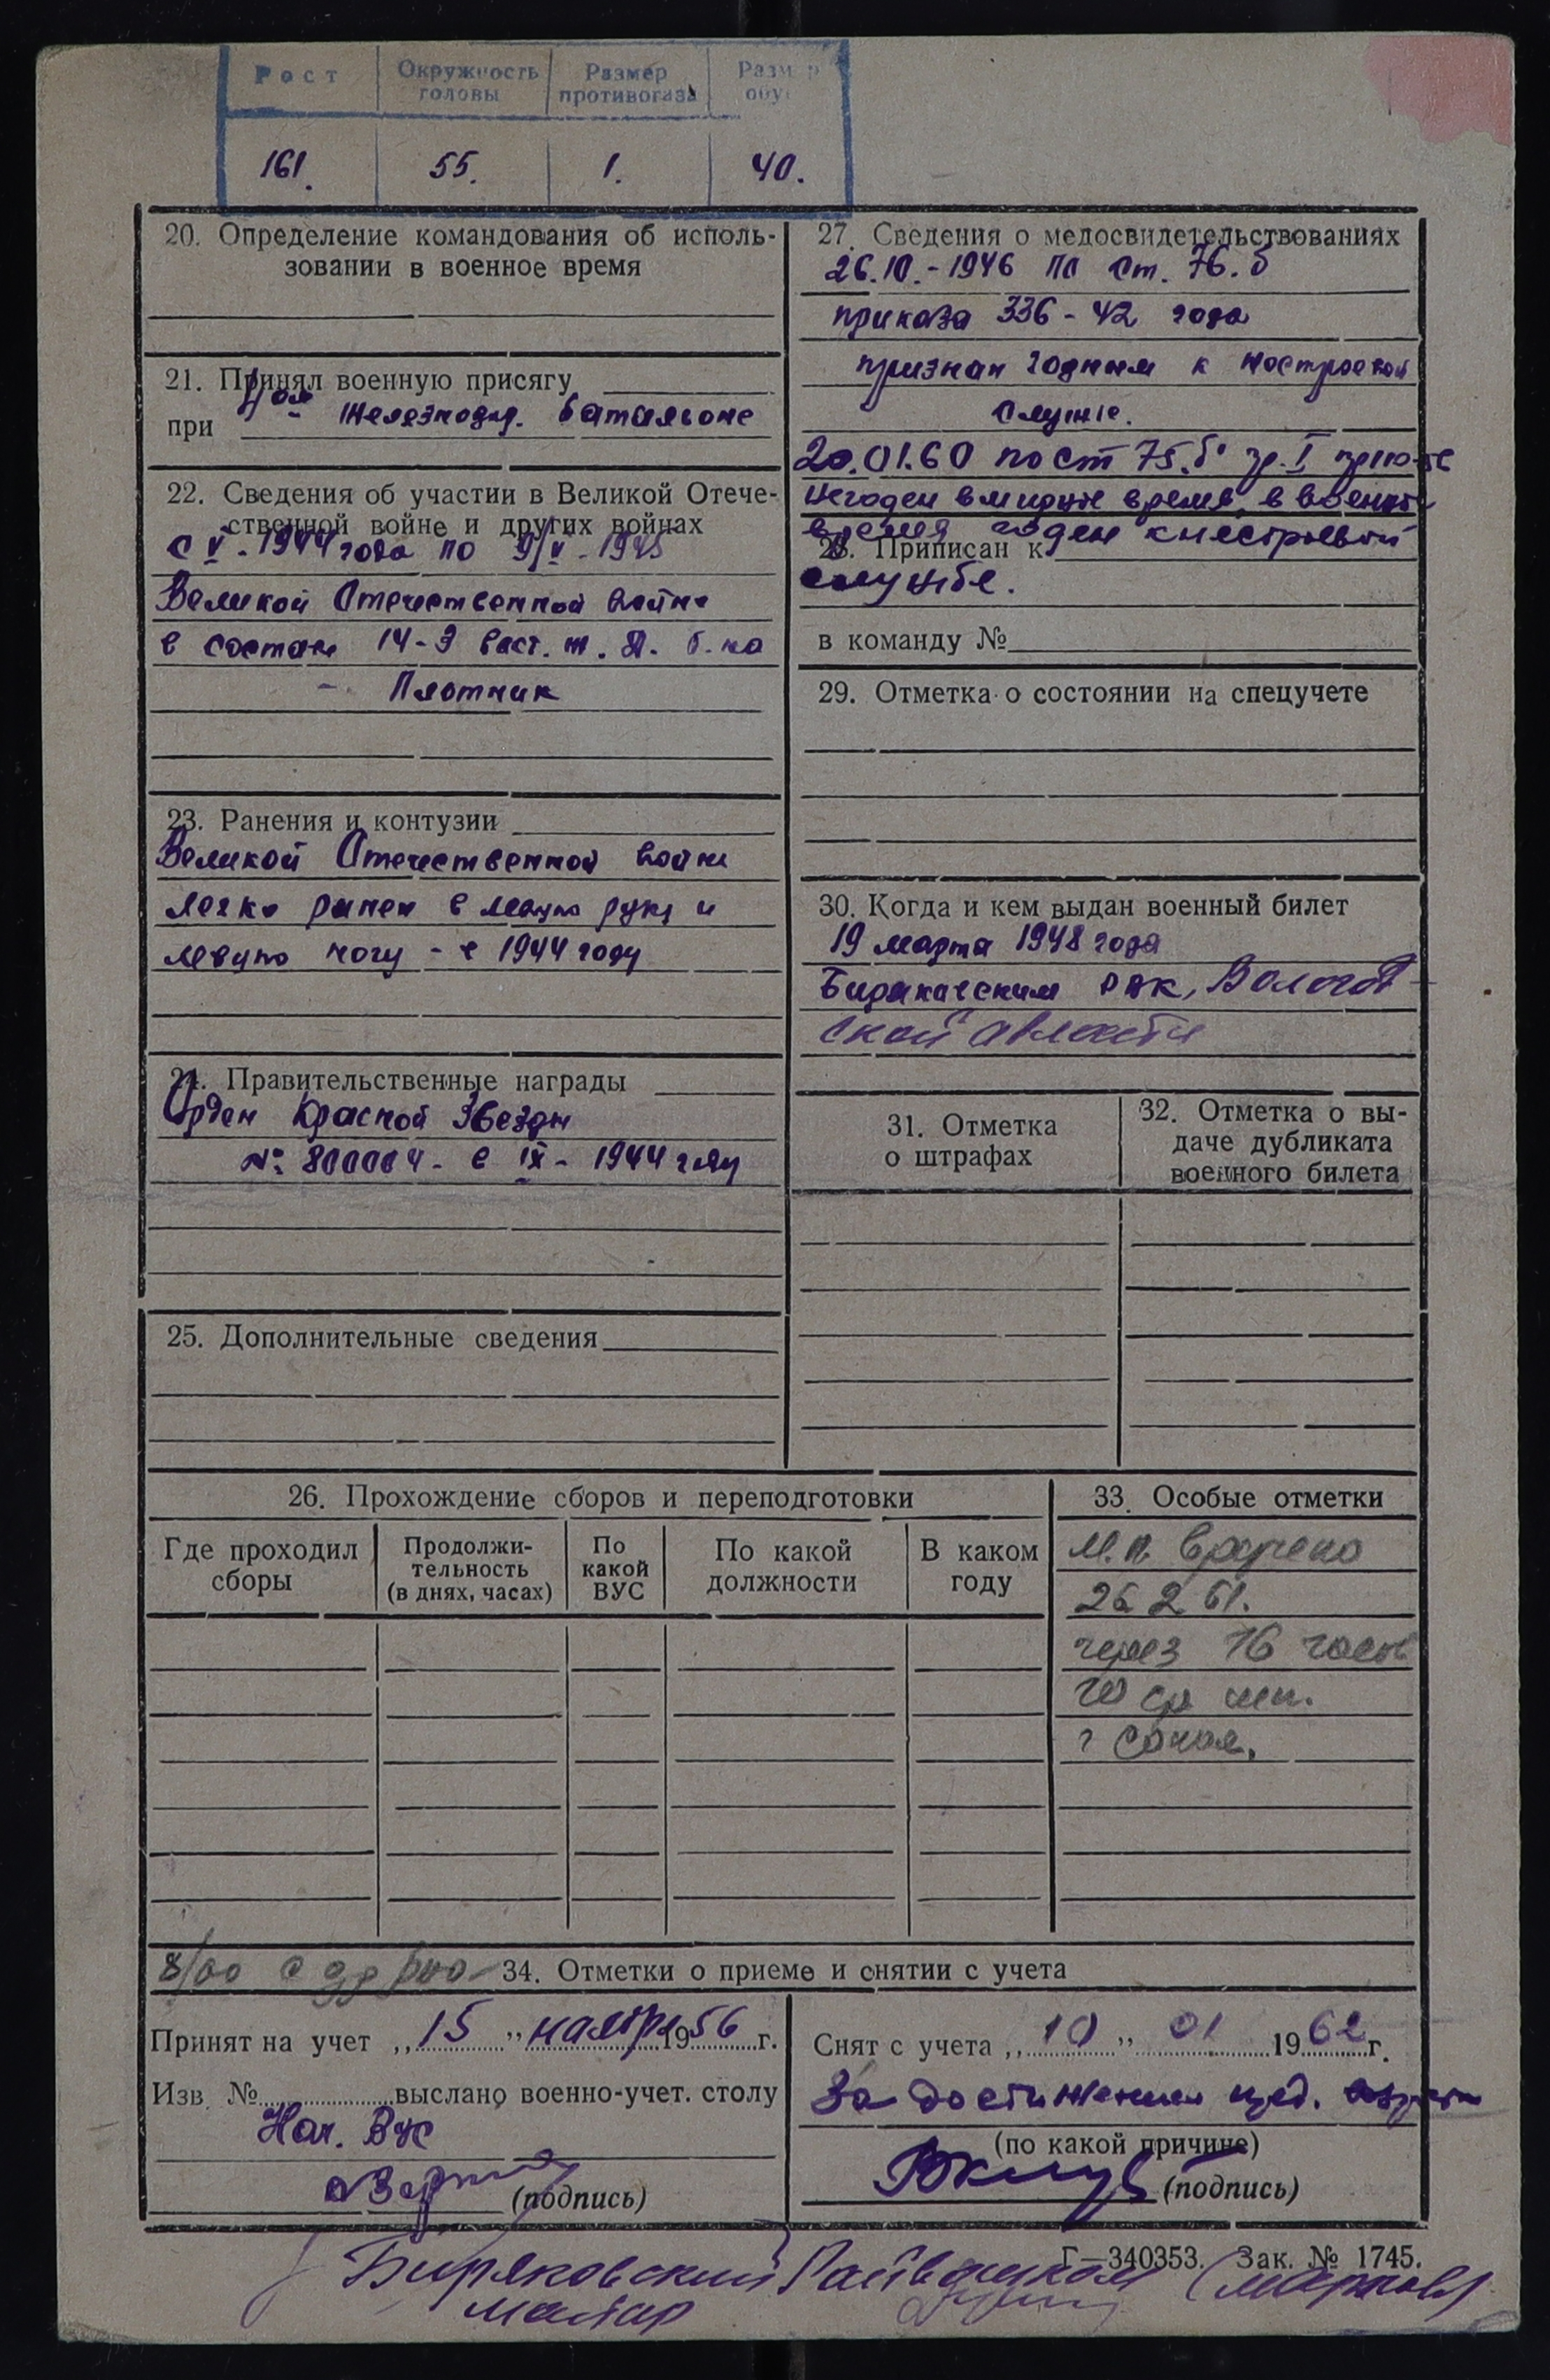 Рост Окружность головы Размер противогаза Размер обу
161. 55. 1. 40.
20. Определение командования об исполь-
зовании в военное время
21. Принял военную присягу
при железнодор. батальоне
22. Сведения об участии в Великой Отече-
ственной войне и других войнах
с V - 1944 года по 9/V - 1945
Великой Отечественной войне
в составе 14-й вост. ж. д. б-на
- Плотник
23. Ранения и контузии
Великой Отечественной войне
легко ранен в левую руку и
левую ногу - в 1944 году
24. Правительственные награды
Орден Красной Звезды
№ 800004 - в IX - 1944 году
25. Дополнительные сведения
27. Сведения о медосвидетельствованиях
26.10.-1946 по ст. 76.б
приказа 336 - 42 года
признан годным к нестроевой
службе.
20.01.60 по ст 75.б гр. I
негоден в мирное время, в военное
время годен к нестроевой
28. Приписан к
службе.
в команду №
29. Отметка о состоянии на спецучете
30. Когда и кем выдан военный билет
19 марта 1948 года
Биряковским РВК, Вологод-
ской области
31. Отметка
о штрафах
32. Отметка о вы-
даче дубликата
военного билета
26. Прохождение сборов и переподготовки
Где проходил сборы Продолжи-тельность (в днях, часах) По какой ВУС По какой должности В каком году
33. Особые отметки
М.п. вручено
26 2 61.
через 16 часов
г Сокол.
34. Отметки о приеме и снятии с учета
Принят на учет „15" ноября 1956 г.
Изв. № выслано военно-учет. столу
Нач. ВУС
(подпись)
Снят с учета „10" 01 1962 г.
За достижением пред. возраста
(по какой причине)
(подпись)
Г—340353. Зак. № 1745.
Биряковский Райвоенком
майор